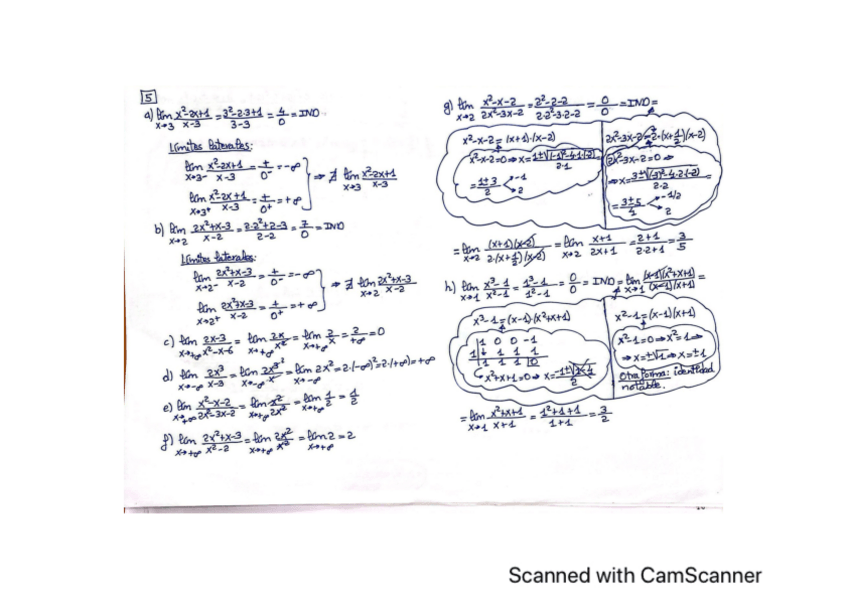 5
a) lim x→3 x²-2x+1/x-3 = 3²-2·3+1/3-3 = 4/0 = IND
Límites laterales:
lim x→3⁻ x²-2x+1/x-3 = +/0⁻ = -∞
lim x→3⁺ x²-2x+1/x-3 = +/0⁺ = +∞
⇒ ∄ lim x→3 x²-2x+1/x-3
b) lim x→2 2x²+x-3/x-2 = 2·2²+2-3/2-2 = 7/0 = IND
Límites laterales:
lim x→2⁻ 2x²+x-3/x-2 = +/0⁻ = -∞
lim x→2⁺ 2x²+x-3/x-2 = +/0⁺ = +∞
⇒ ∄ lim x→2 2x²+x-3/x-2
c) lim x→+∞ 2x-3/x²-x-6 = lim x→+∞ 2x/x² = lim x→+∞ 2/x = 2/+∞ = 0
d) lim x→-∞ 2x³/x-3 = lim x→-∞ 2x³/x = lim x→-∞ 2x² = 2·(-∞)² = 2·(+∞) = +∞
e) lim x→+∞ x²-x-2/2x²-3x-2 = lim x→+∞ x²/2x² = lim x→+∞ 1/2 = 1/2
f) lim x→+∞ 2x²+x-3/x²-2 = lim x→+∞ 2x²/x² = lim x→+∞ 2 = 2
g) lim x→2 x²-x-2/2x²-3x-2 = 2²-2-2/2·2²-3·2-2 = 0/0 = IND =
x²-x-2 = (x+1)·(x-2)
x²-x-2=0 ⇒ x = 1±√(-1)²-4·1·(-2)/2·1
= 1±3/2 -1 2
2x²-3x-2 = 2·(x+1/2)·(x-2)
2x²-3x-2=0 ⇒
⇒ x = 3±√(-3)²-4·2·(-2)/2·2 =
= 3±5/4 -1/2 2
= lim x→2 (x+1)·(x-2)/2·(x+1/2)·(x-2) = lim x→2 x+1/2x+1 = 2+1/2·2+1 = 3/5
h) lim x→1 x³-1/x²-1 = 1³-1/1²-1 = 0/0 = IND = lim x→1 (x-1)(x²+x+1)/(x-1)(x+1) =
x³-1 = (x-1)·(x²+x+1)
1 0 0 -1
1 1 1 1
1 1 1 0
x²+x+1=0 ⇒ x = -1±√1-4/2
x²-1 = (x-1)(x+1)
x²-1=0 ⇒ x²=1 ⇒
⇒ x=±√1 ⇒ x=±1
Otra forma: identidad
notable.
= lim x→1 x²+x+1/x+1 = 1²+1+1/1+1 = 3/2
Scanned with CamScanner